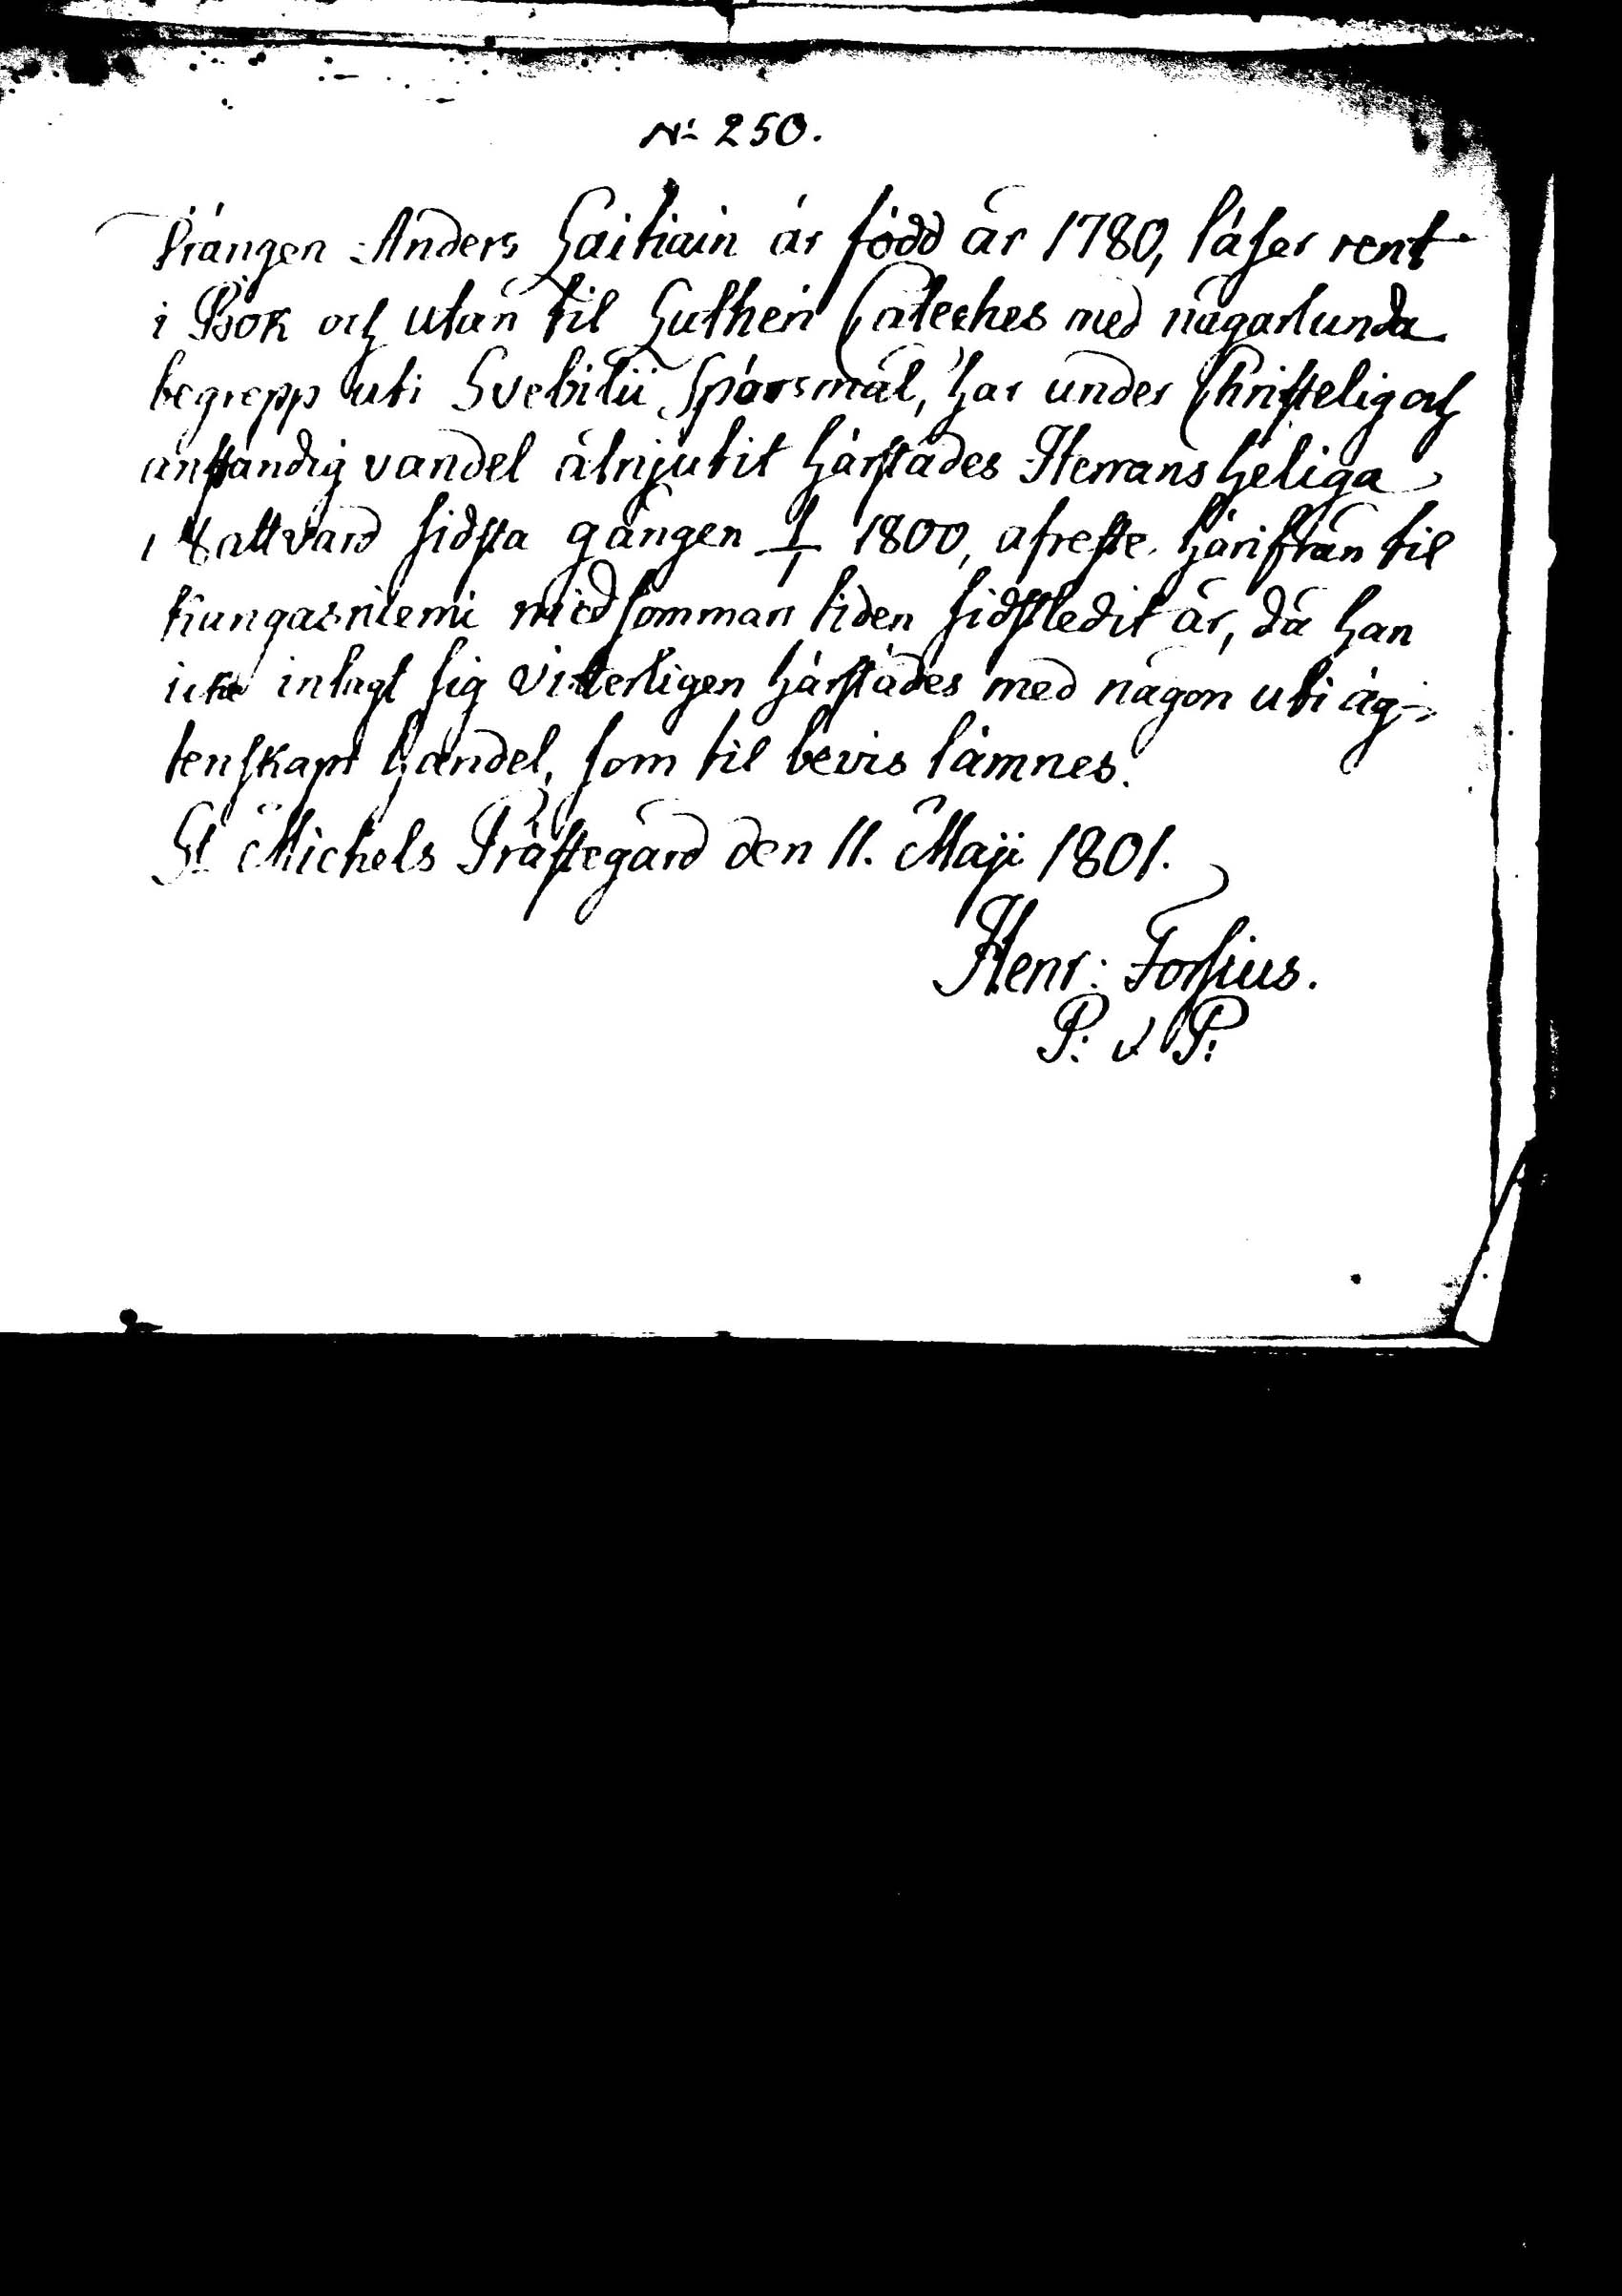 No 250.
Drängen Anders Laitiain är född år 1780, läser rent
i Bok och utan til Lutheri Cateches med någorlunda
begrepp uti Svebilii Spörsmål, har under Christelig och
anständig vandel åtnjutit härstädes Herrans Heliga
Nattvard sidsta gången 1/1 1800, afreste härifrån til
Kangasniemi midsommars tiden sidstledit år, då han
icke inlagt sig vitterligen härstädes med någon uti äg-
tenskaps handel, som til bevis lämnes.
St Michels Prästegård den 11. Maji 1801.
Henr: Forsius.
P. & P: